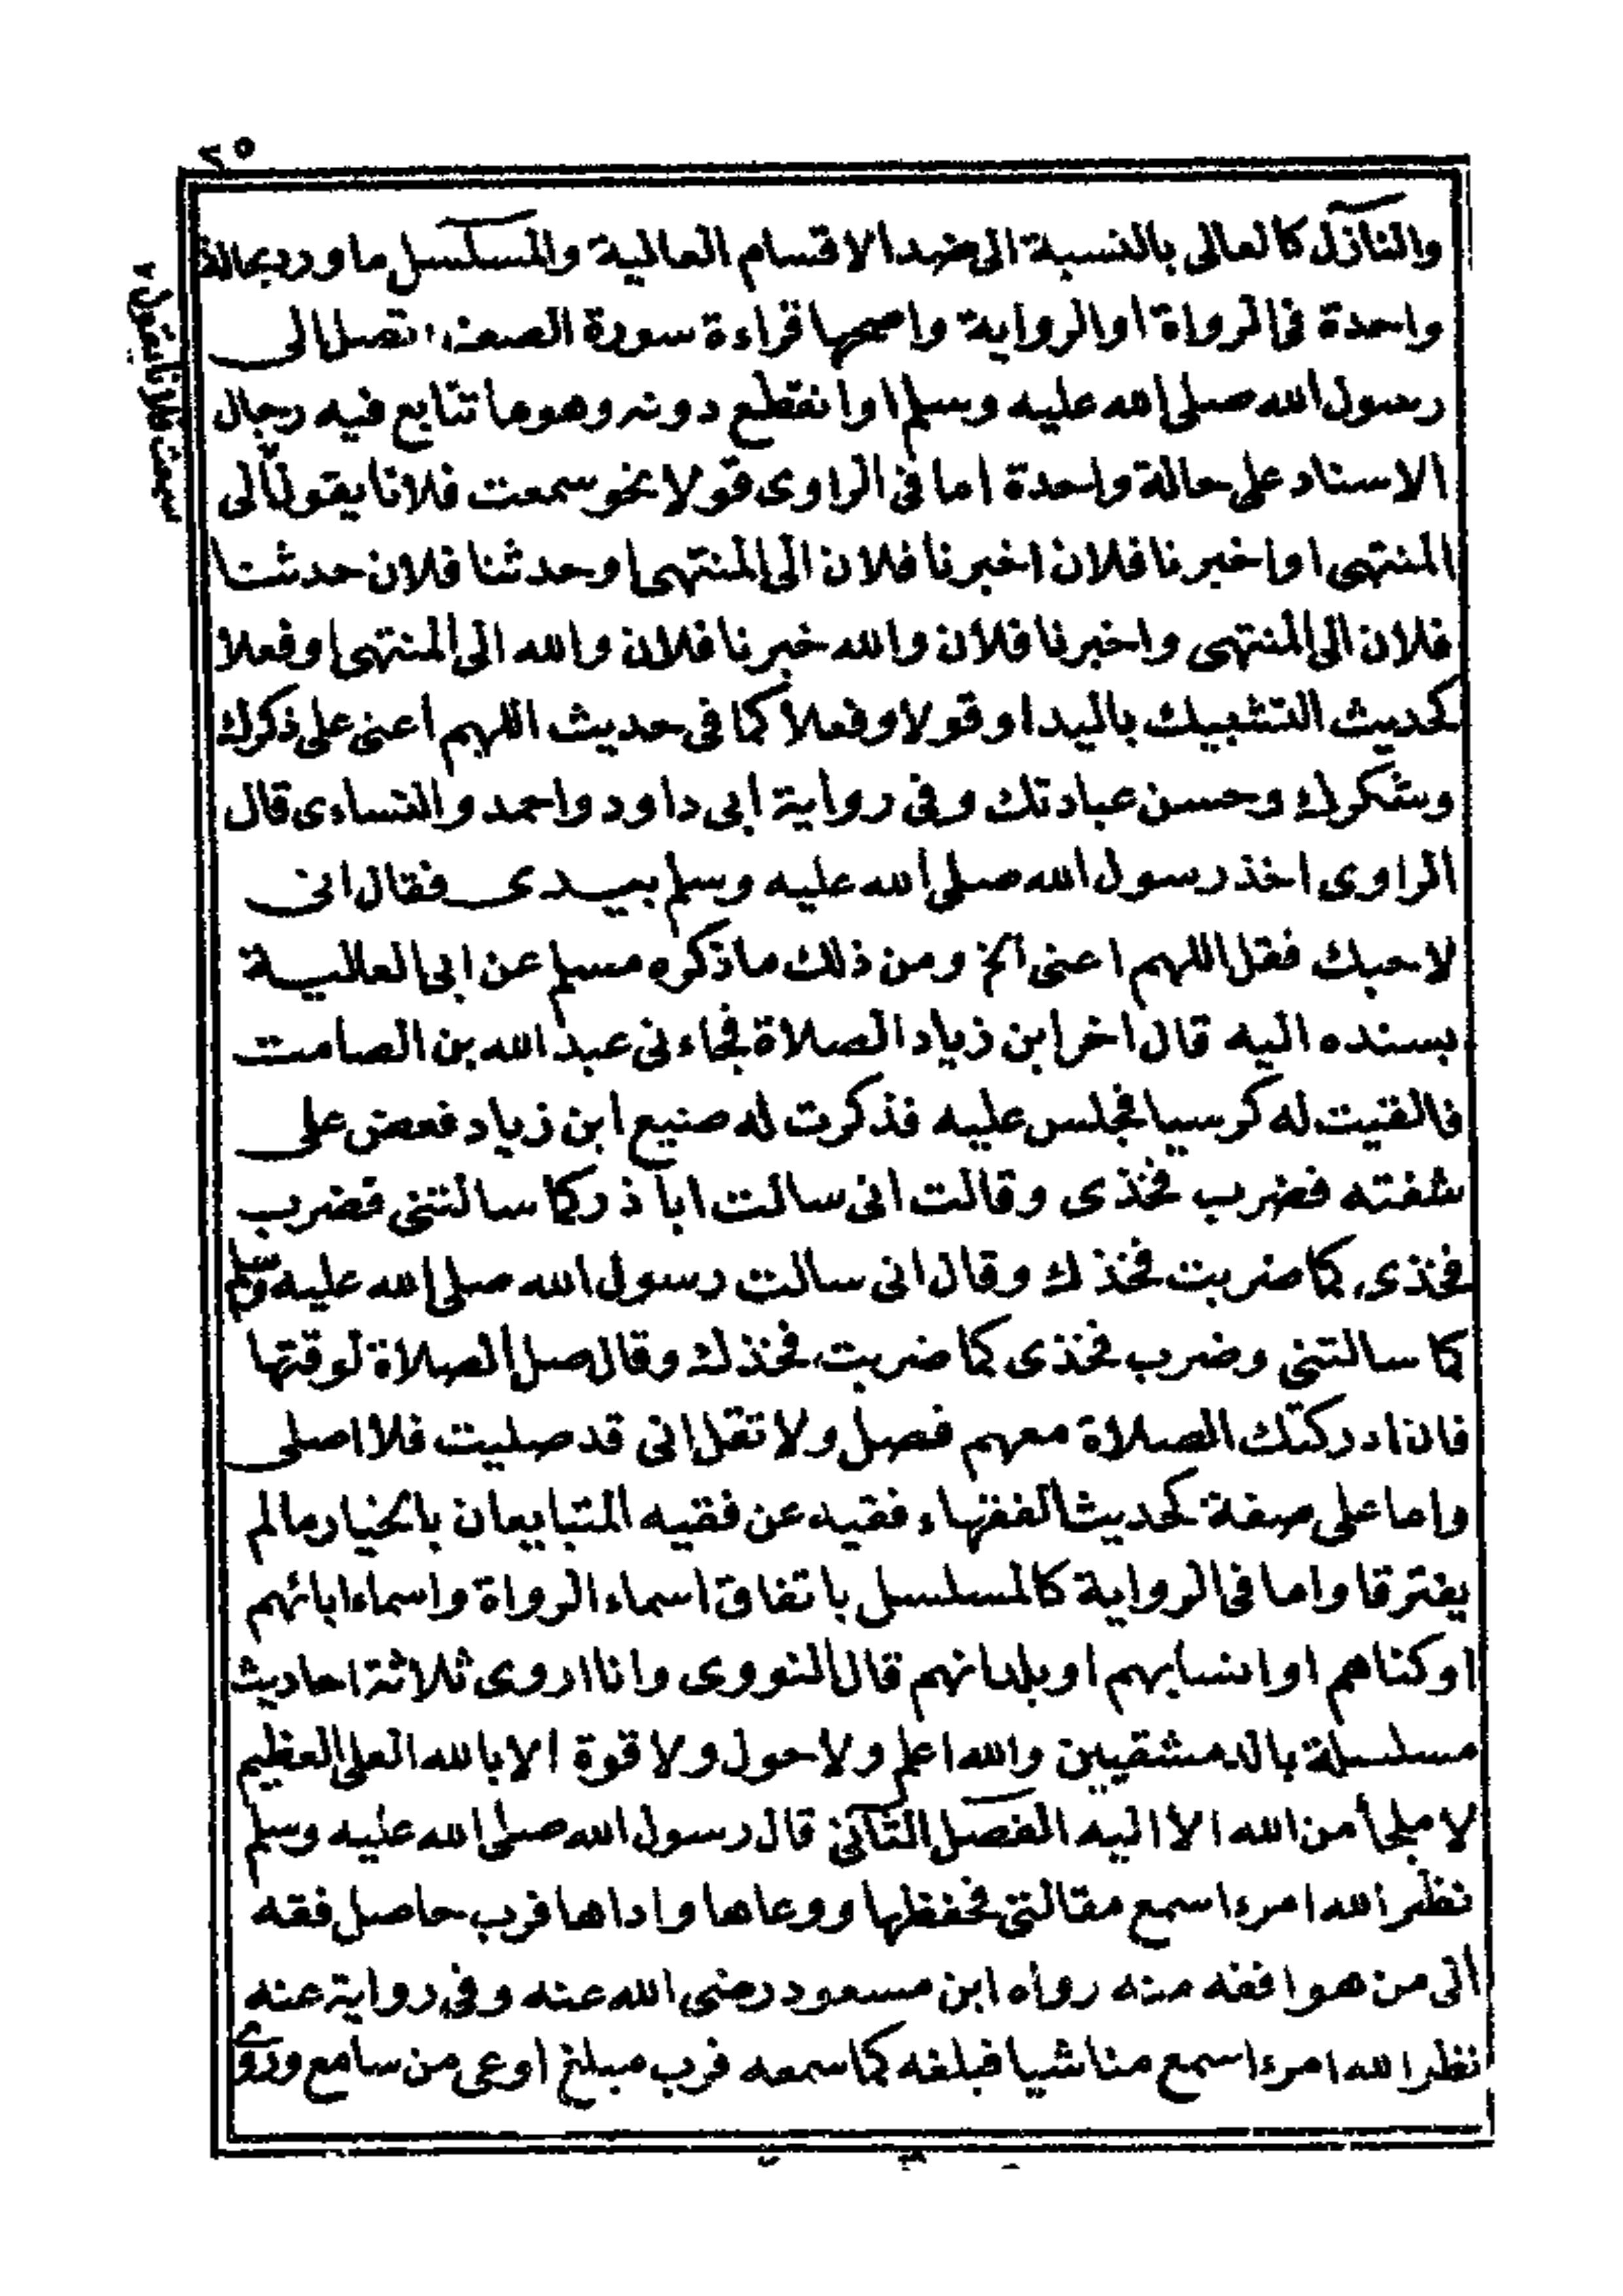 ٢٥
والنازل كالعالى بالنسبة الى ضد الاقسام العالية والمسلسل ما ورد بحالة
واحدة فى الرواة او الرواية واصحها قراءة سورة الصف اتصل الى
رسول الله صلى الله عليه وسلم او انقطع دونه وهو ما تتابع فيه رجال
الاسناد على حالة واحدة اما فى الراوى قولا نحو سمعت فلانا يقول الى
المنتهى او اخبرنا فلان اخبرنا فلان الى المنتهى او حدثنا فلان حدثنا
فلان الى المنتهى واخبرنا فلان والله خبرنا فلان والله الى المنتهى او فعلا
كحديث التشبيك باليد او قولا وفعلا كما فى حديث اللهم اعنى على ذكرك
وشكرك وحسن عبادتك وفى رواية ابى داود واحمد والنساءى قال
الراوى اخذ رسول الله صلى الله عليه وسلم بيدى فقال انى
لاحبك فقل اللهم اعنى الخ ومن ذلك ما ذكره مسلم عن ابى العالية
بسنده اليه قال اخر ابن زياد الصلاة فجاءنى عبد الله بن الصامت
فالقيت له كرسيا فجلس عليه فذكرت له صنيع ابن زياد فعض على
شفته فضرب فخذى وقالت انى سالت ابا ذر كما سالتنى فضرب
فخذى كما ضربت فخذك وقال انى سالت رسول الله صلى الله عليه وسلم
كما سالتنى وضرب فخذى كما ضربت فخذك وقال صل الصلاة لوقتها
فان ادركتك الصلاة معهم فصل ولا تقل انى قد صليت فلا اصلى
واما على صفة كحديث الفقهاء فقيه عن فقيه المتبايعان بالخيار مالم
يفترقا واما فى الرواية كالمسلسل باتفاق اسماء الرواة واسماء ابائهم
او كناهم او انسابهم او بلدانهم قال النووى وانا اروى ثلاثة احاديث
مسلسلة بالدمشقيين والله اعلم ولا حول ولا قوة الا بالله العلى العظيم
لا ملجأ من الله الا اليه الفصل الثانى قال رسول الله صلى الله عليه وسلم
نظر الله امرءا سمع مقالتى فحفظها ووعاها واداها فرب حاصل فقه
الى من هو افقه منه رواه ابن مسعود رضى الله عنه وفى رواية عنه
نظر الله امرءا سمع منا شيا فبلغه كما سمعه فرب مبلغ اوعى من سامع وروى
سمعت فلانا يقول